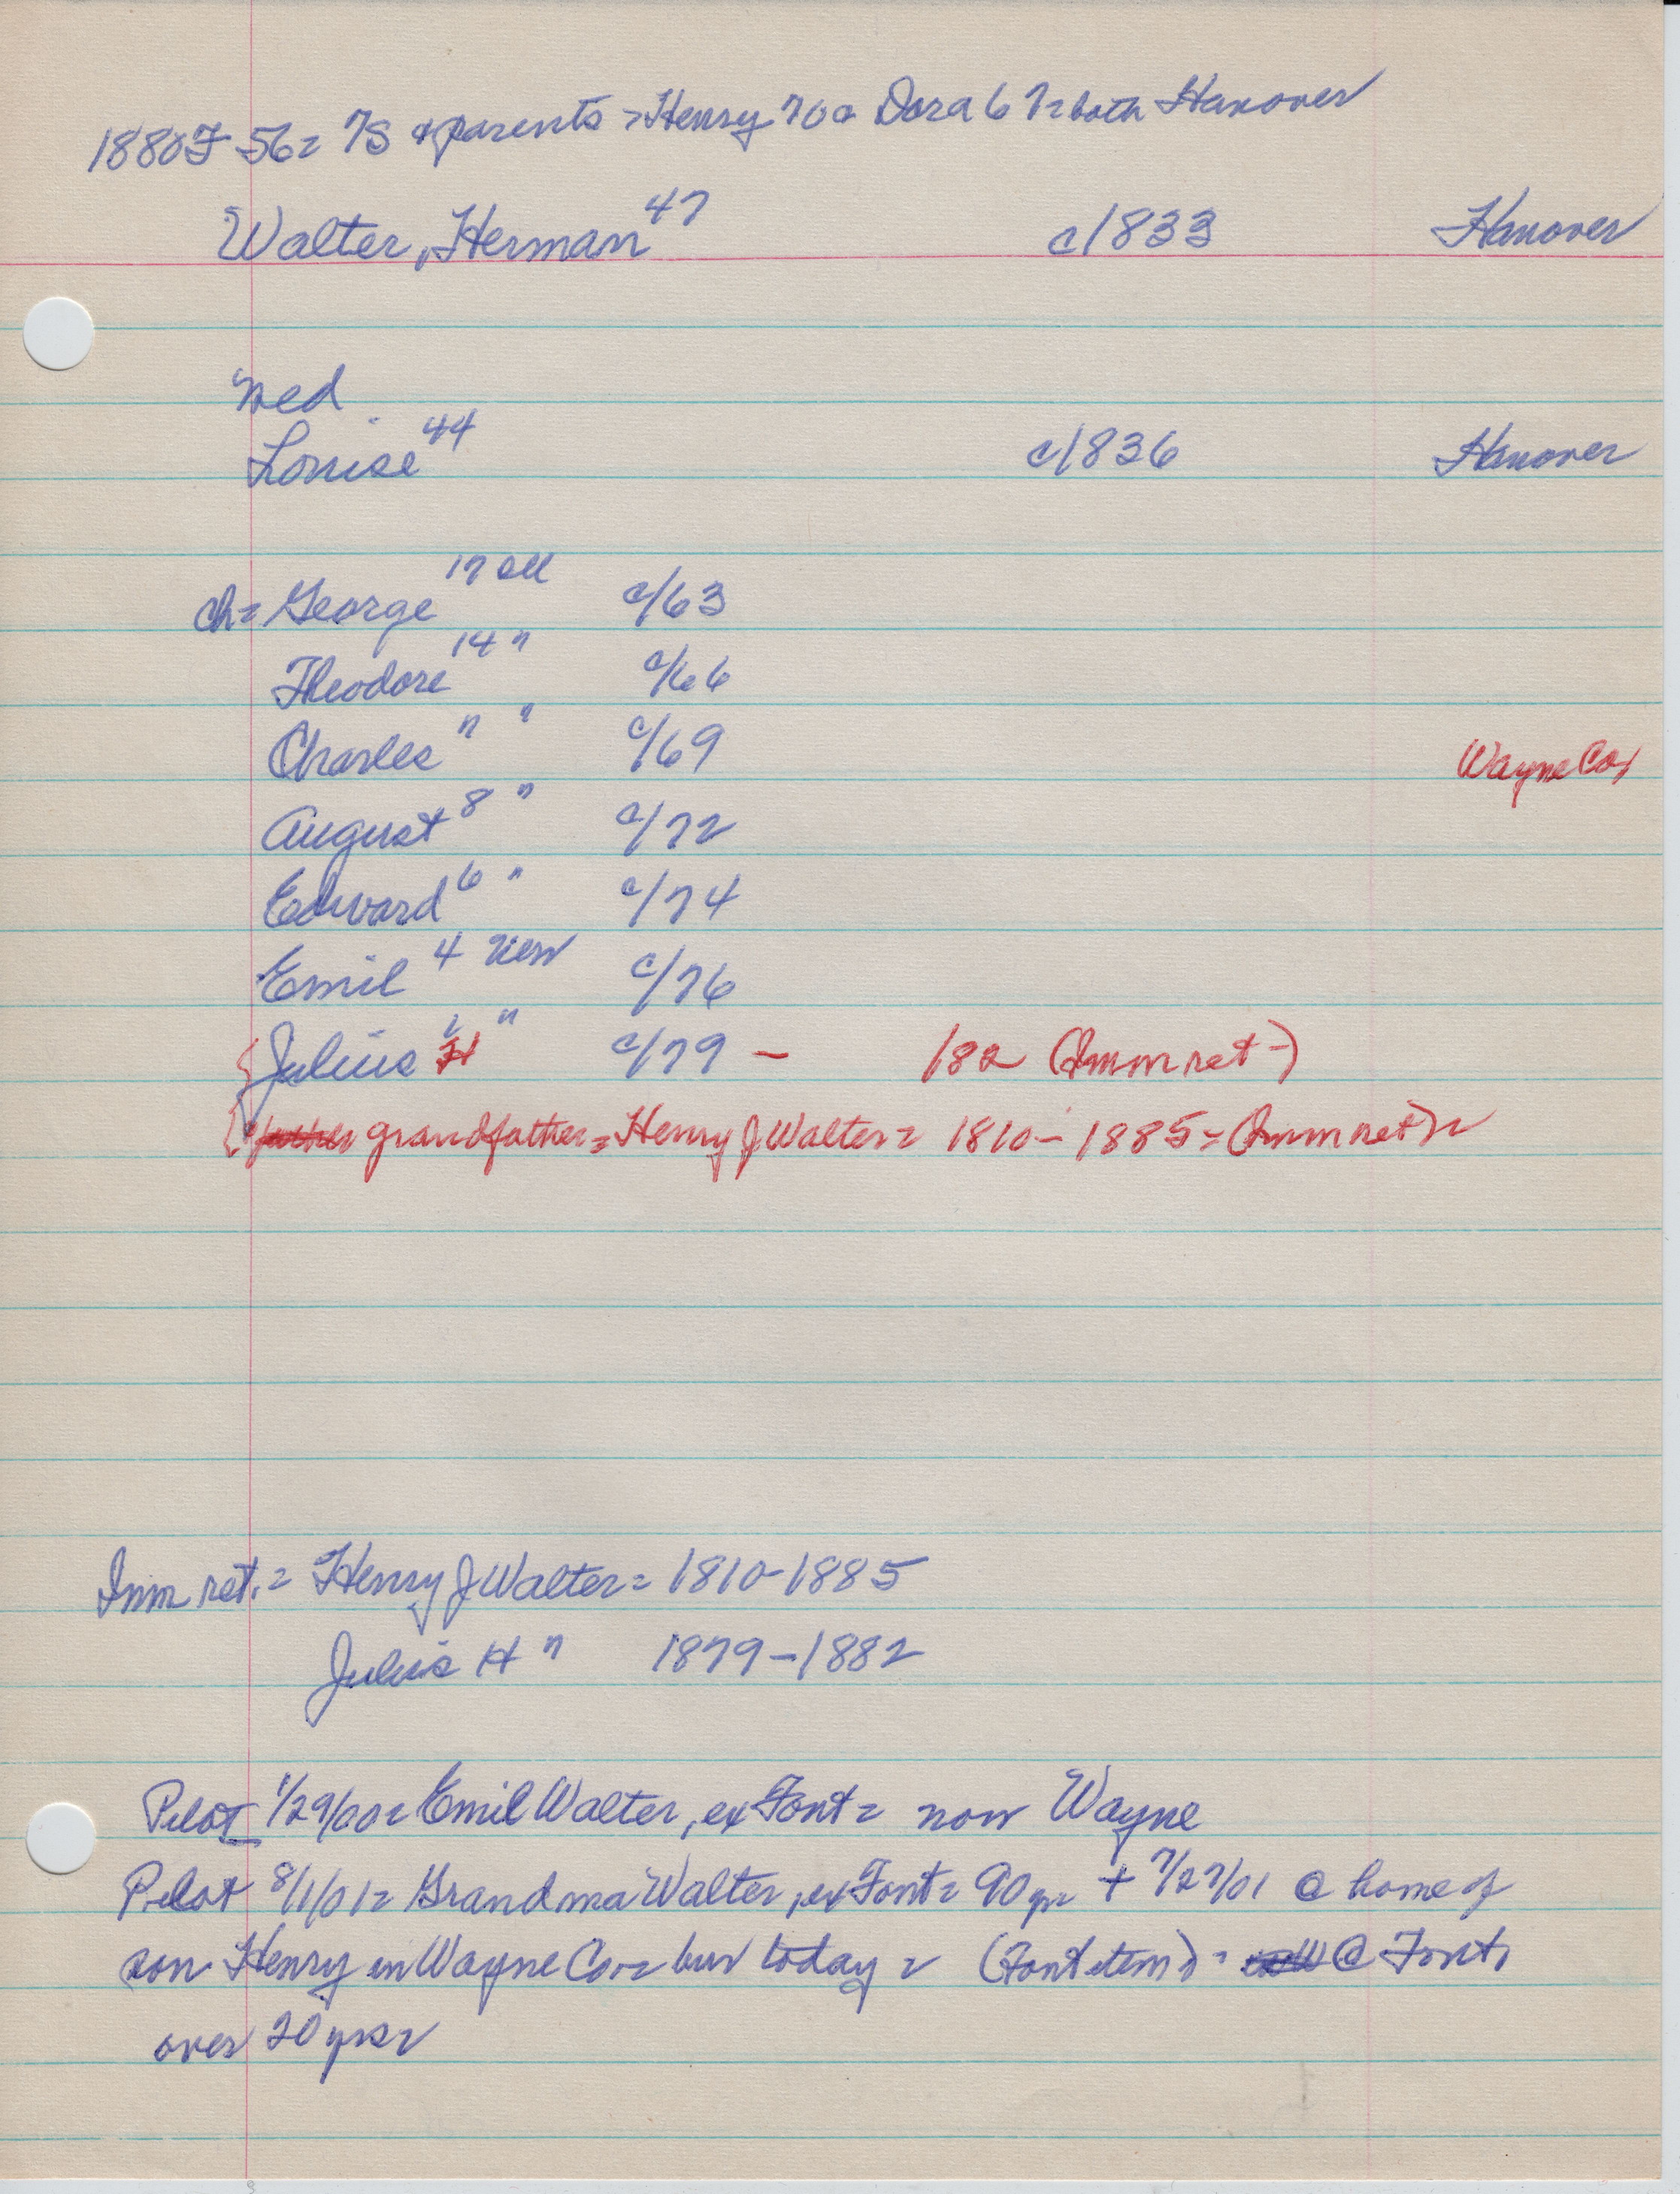 1880 F 56 = 7S & parents = Henry 70 a Dora 67 = both Hanover
Walter, Herman 47 c/1833 Hanover
Wed
Louise 44 c/1836 Hanover
ch = George 17 Ill c/63
Theodore 14 " c/66
Charles " " c/69 Wayne Co,
August 8 " c/72
Edward 6 " c/74
Emil 4 c/76
Julius H 1 " c/79 - 182 (Imm ret -)
grandfather = Henry J Walter = 1810 - 1885 = (Imm ret) =
Imm ret. = Henry J Walter = 1810-1885
Julius H " 1879-1882
Pilot 1/29/00 = Emil Walter, ex Font = now Wayne
Pilot 8/1/01 = Grandma Walter, ex Font = 90 yr = + 7/27/01 @ home of
son Henry in Wayne Co = bur today = (Font item) = @ Font,
over 20 yrs =